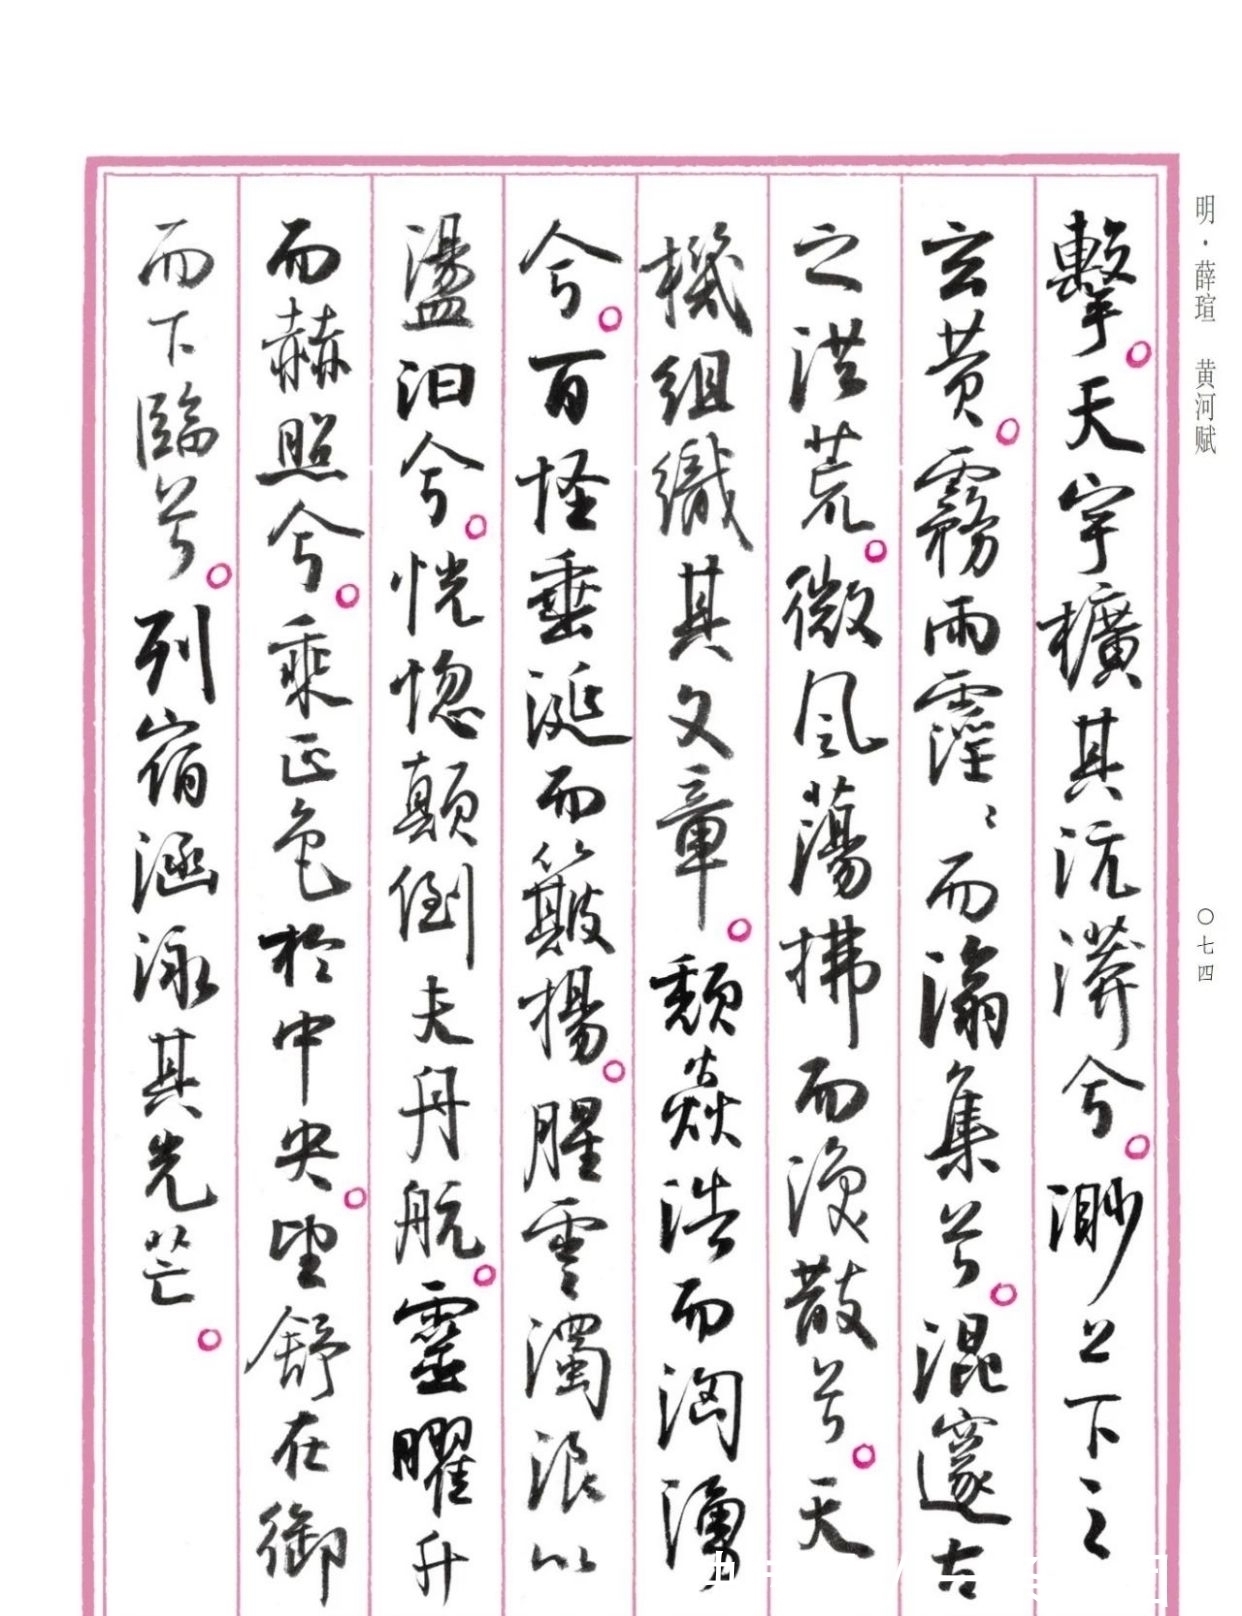 明·薛瑄 黄河赋
擊。天宇擴其沆漭兮。渺上下之
玄黄。霧雨霪〻而滃集兮。混邃古
之洪荒。微风蕩拂而渙散兮。天
機組織其文章。颓焱浩而洶湧
兮。百怪垂涎而簸揚。腥雲濁浪以
盪汩兮。恍惚顛倒夫丹航。靈曜升
而赫照兮。乘正色於中央。望舒在御
而下臨兮。列宿涵泳其光芒。
〇七四